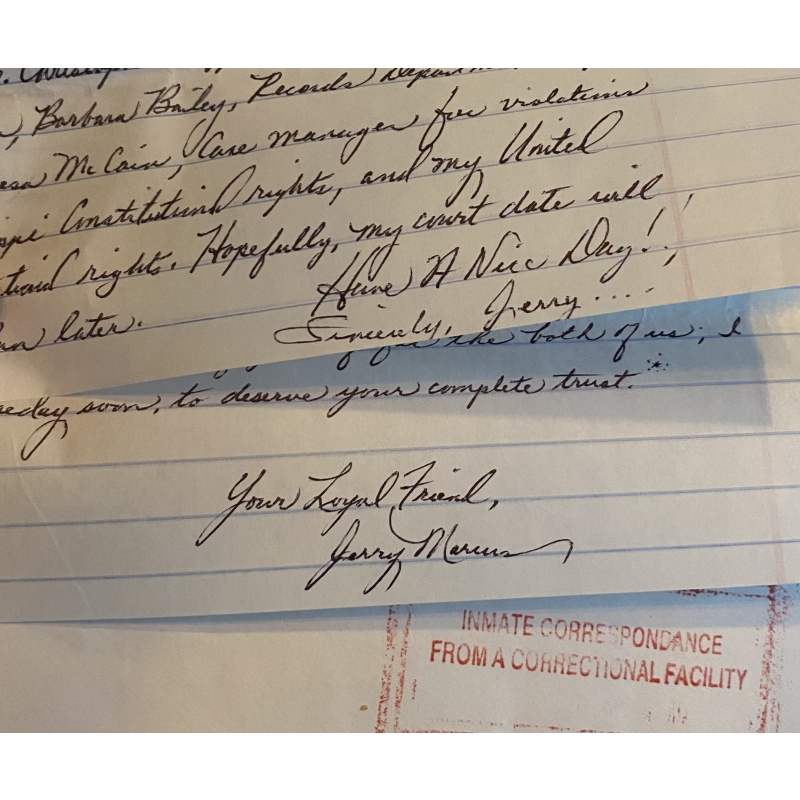 Barbara Bailey, Records
McCain, Case manager for violations
Constitutional rights, and my United
rights. Hopefully, my court date will
later.
Have A Nice Day!
Sincerely, Jerry....
the both of us, I
soon, to deserve your complete trust.
Your Loyal Friend,
Jerry Marcus
INMATE CORRESPONDANCE
FROM A CORRECTIONAL FACILITY